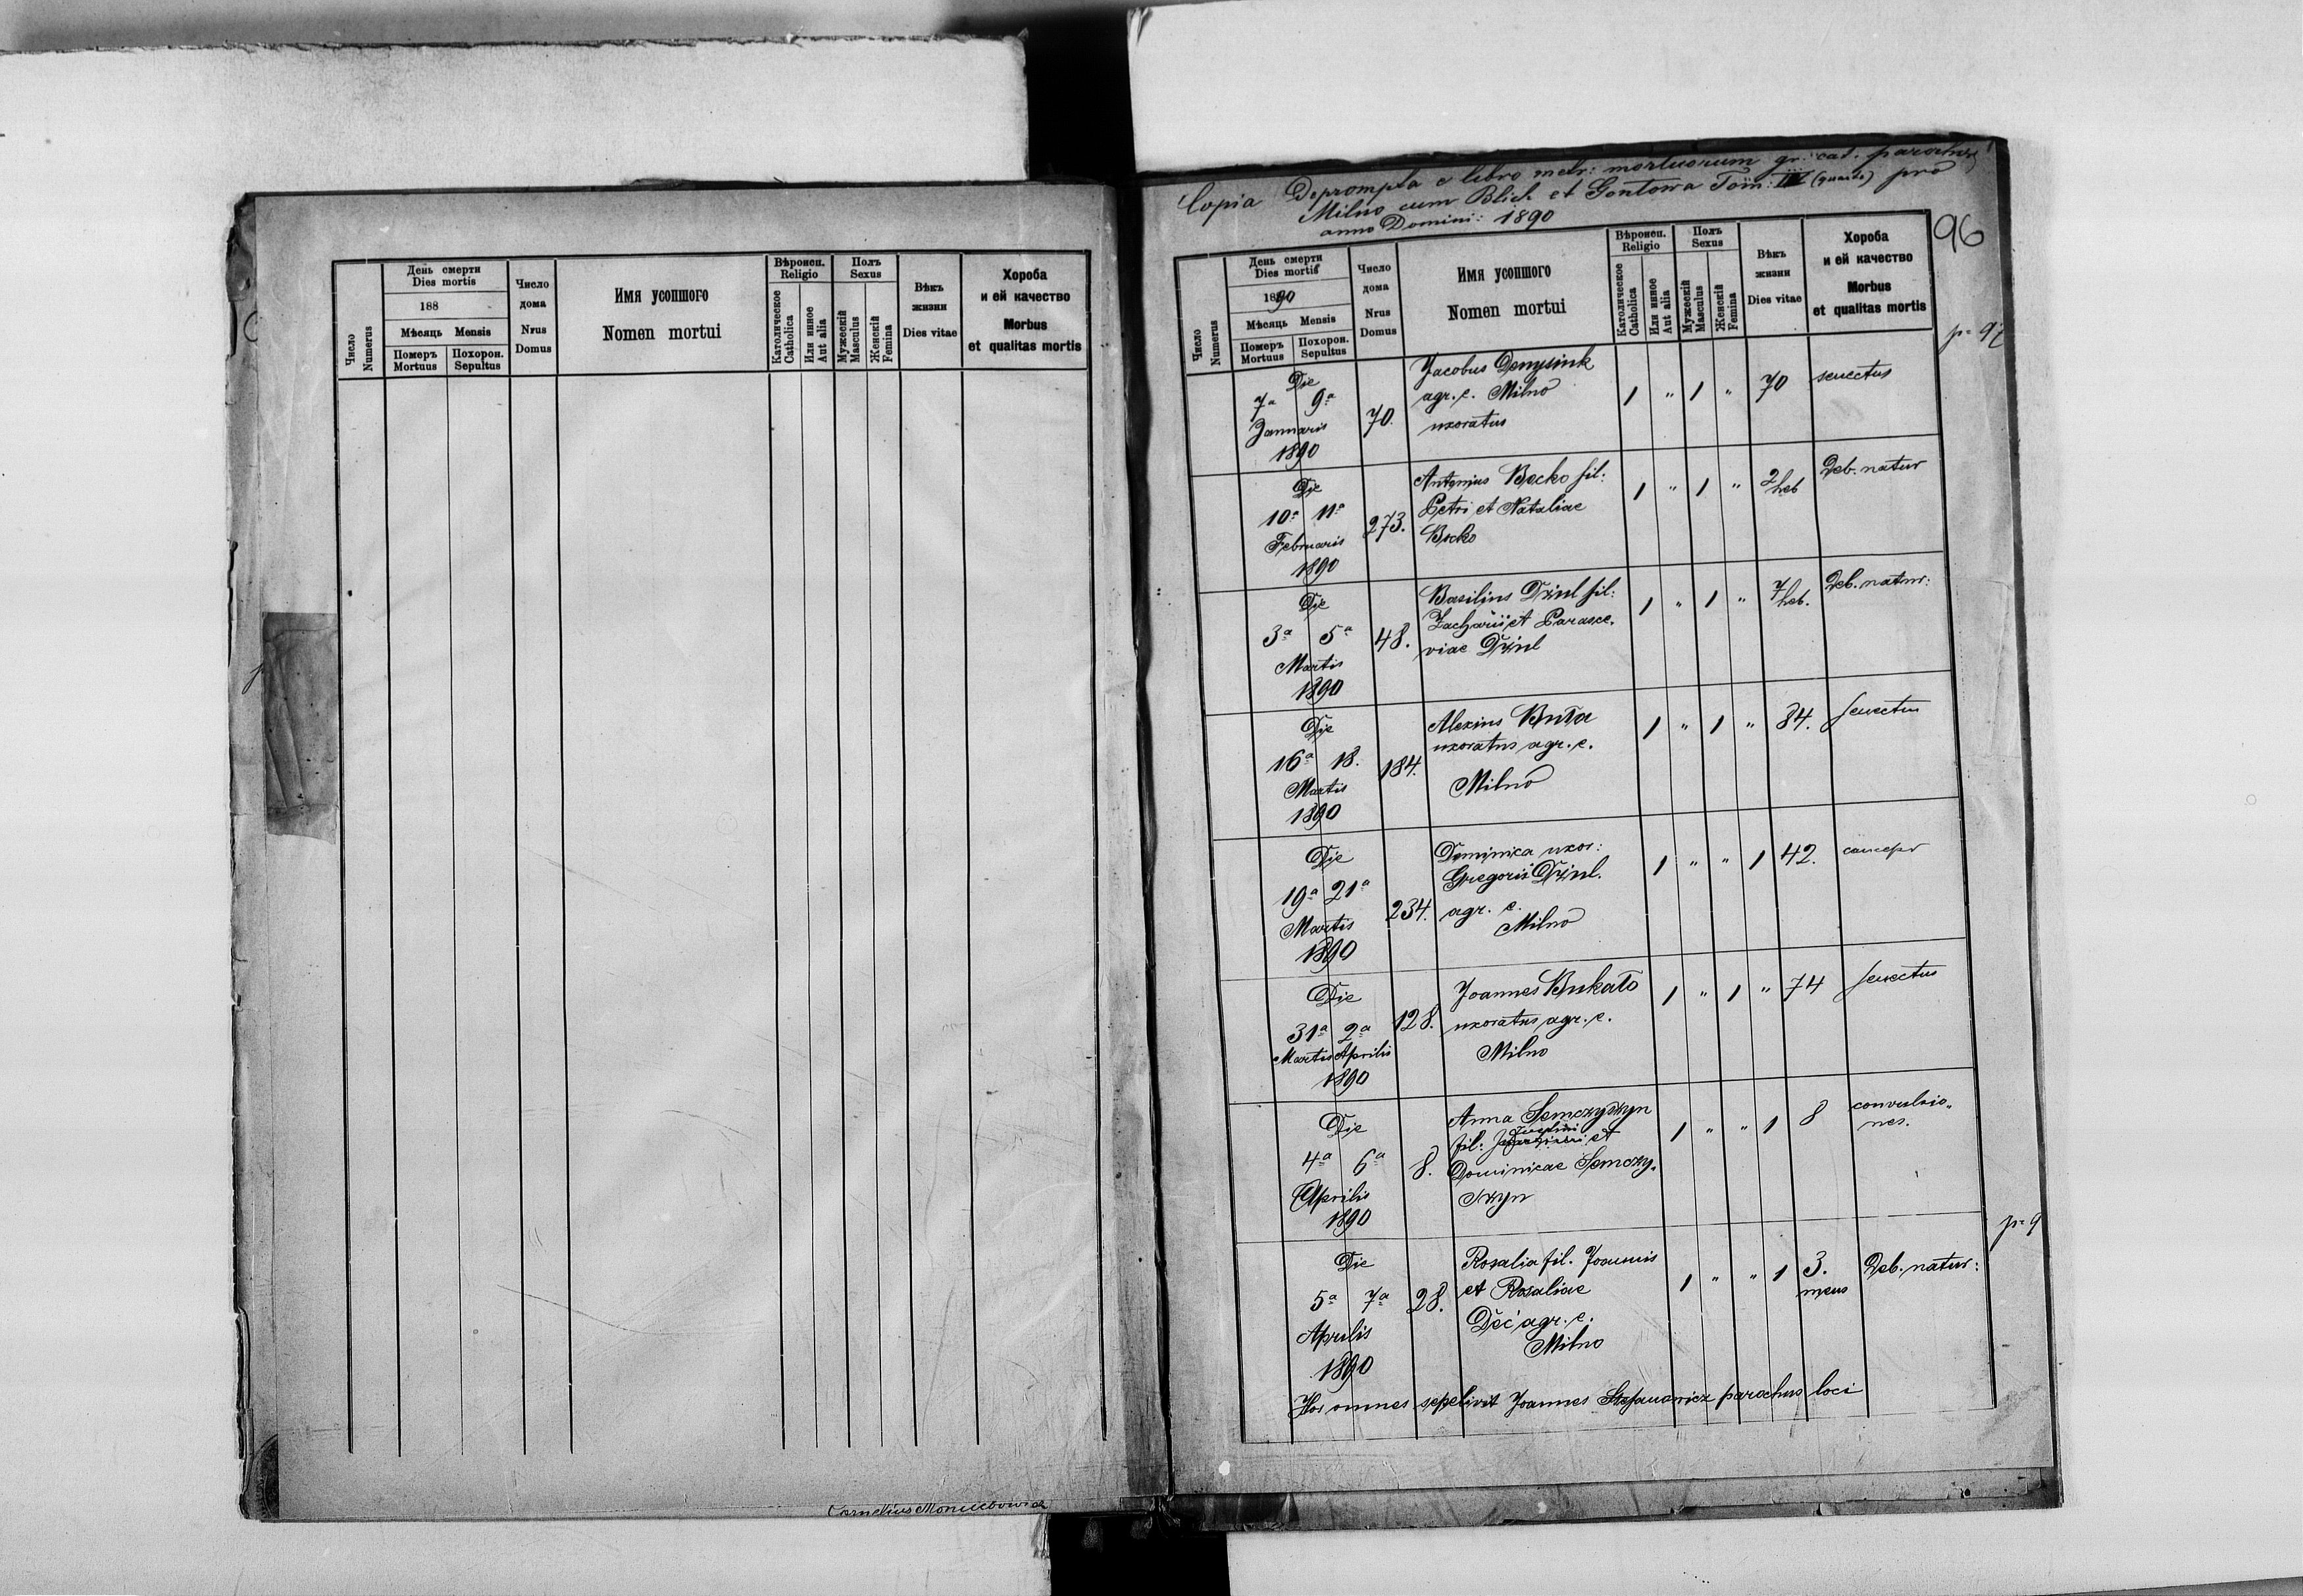 Число
Numerus
День смерти
Dies mortis
188
Мѣсяць Mensis
Померъ
Mortuus
Похорон.
Sepultus
Число
дома
Nrus
Domus
Имя усопшого
Nomen mortui
Вѣроисп.
Religio
Католическое
Catholica
Или инное
Aut alia
Полъ
Sexus
Мужескій
Masculus
Женскій
Femina
Вѣкъ
жизни
Dies vitae
Хороба
и ей качество
Morbus
et qualitas mortis
Copia Deprompta e libro metr: mortuorum gr: cat. parochiae
Milno cum Blich et Gontowa Tom: III pro
anno Domini: 1890
96
Число
Numerus
День смерти
Dies mortis
1890
Мѣсяць Mensis
Померъ
Mortuus
Похорон.
Sepultus
Число
дома
Nrus
Domus
Имя усопшого
Nomen mortui
Вѣроисп.
Religio
Католическое
Catholica
Или инное
Aut alia
Полъ
Sexus
Мужескій
Masculus
Женскій
Femina
Вѣкъ
жизни
Dies vitae
Хороба
и ей качество
Morbus
et qualitas mortis
p= 97
Die
7ª 9ª
Januaris
1890
70.
Jacobus Denysiuk
agr. c. Milno
uxoratus
1 " 1 "
70
senectus
Die
10ª 11ª
Februaris
1890
273.
Antonius Becko fil:
Petri et Nataliae
Becko
1 " 1 "
2
heb
Deb. natur
Die
3ª 5ª
Martis
1890
48.
Basilius Dziul fil:
Zacharii et Parasce,
viae Dziul
1 " 1 "
7
heb.
Deb. natur:
Die
16ª 18.
Martis
1890
184.
Alexius Buta
uxoratus agr. c.
Milno
1 " 1 "
84.
senectus
Die
19ª 21ª
Martis
1890
234.
Dominica uxor:
Gregorii Dziul.
agr. c.
Milno
1 " " 1
42.
Die
31ª 2ª
Martis Aprilis
1890
128.
Joannes Bukato
uxoratus agr. c.
Milno
1 " 1 "
74
senectus
Die
4ª 6ª
Aprilis
1890
8.
Anna Semczyszyn
fil: et
Dominicae Semczy,
szyn
1 " " 1
8
convulsio,,
nes.
Die
5ª 7ª
Aprilis
1890
28.
Rosalia fil. Joannis
et Rosaliae
Deć agr. c.
Milno
1 " " 1
3.
mens
Deb. natur:
p= 9
Hos omnes sepelivit Joannes Stefanowicz parochus loci